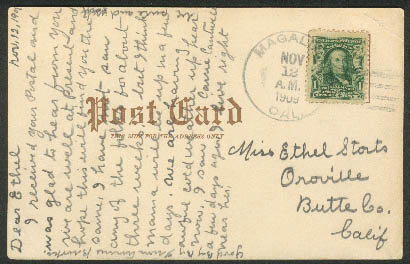 Nov. 12, 190
Dear Ethel
I received your Postal and
was glad to hear from you
we are well at present and
hope this will find you the
same. I have not saw
any of the folks for about
three weeks but I think
mama will be up in a few
days. We are having
cold weather up
now. I saw Carrie
a few days ago I live right
near her.
Post Card
THIS SIDE FOR THE ADDRESS ONLY
MAGAL
NOV
12
A.M.
1909
CAL
Miss Ethel Storts
Oroville
Butte Co.
Calif